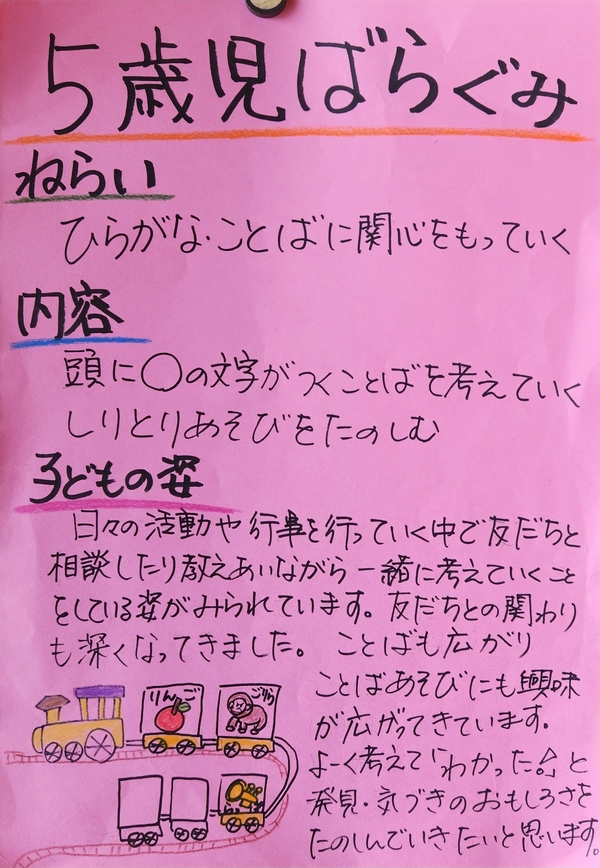 5歳児ばらぐみ
ねらい
ひらがな・ことばに関心をもっていく
内容
頭に〇の文字がつくことばを考えていく
しりとりあそびをたのしむ
子どもの姿
日々の活動や行事を行っていく中で友だちと
相談したり教えあいながら一緒に考えていくこと
をしている姿がみられています。友だちとの関わり
も深くなってきました。 ことばも広がり
ことばあそびにも興味
が広がってきています。
よーく考えて「わかった!」と
発見・気づきのおもしろさを
たのしんでいきたいと思います。
りんご
ごりら